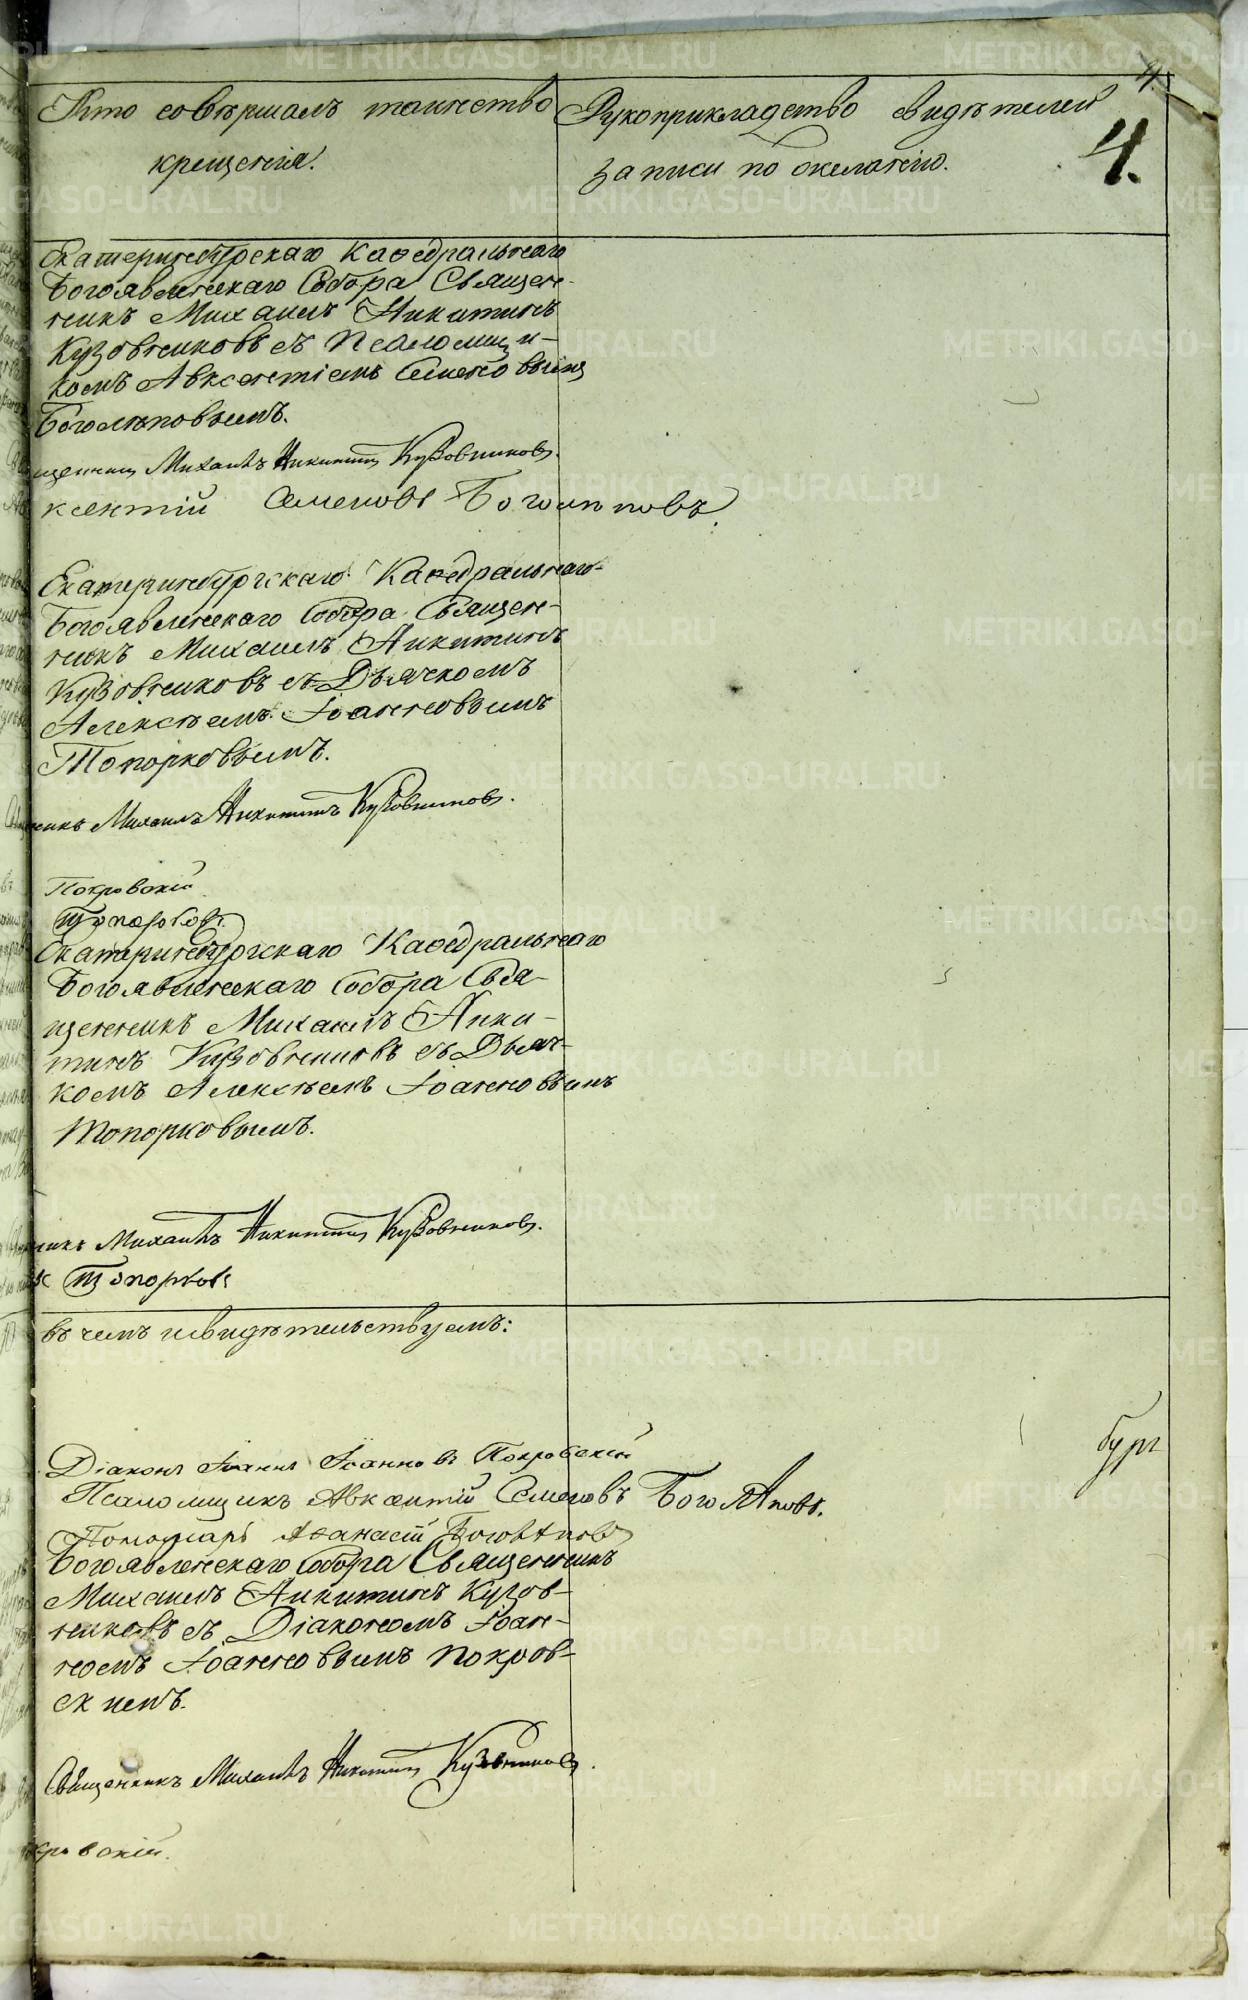 4.
Кто совѣршалъ таинство крещенія.
Рукоприкладство свидѣтелей записи по желанію.
4.
Екатеринбурскаго Каѳедральнаго
Богоявленскаго Собора Священ-
никъ Михаилъ Никитинъ
Кузовниковъ съ Псаломщи-
комъ Авксентіемъ Семеновымъ
Боголѣповымъ.
щенникъ Михаилъ Никитинъ Кузовниковъ.
ксентій Семеновъ Боголѣповъ.
Екатеринбургскаго Каѳедральнаго
Богоявленскаго Собора Священ-
никъ Михаилъ Никитинъ
Кузовниковъ съ Дьячкомъ
Алексѣемъ Іоанновымъ
Топорковымъ.
никъ Михаилъ Никитинъ Кузовниковъ.
Покровскій
Топорковъ.
Екатеринбургскаго Каѳедральнаго
Богоявленскаго Собора Свя-
щенникъ Михаилъ Ники-
тинъ Кузовниковъ съ Дьяч-
комъ Алексѣемъ Іоанновымъ
Топорковымъ.
никъ Михаилъ Никитинъ Кузовниковъ.
Топорковъ
въ чемъ и свидѣтельствуемъ:
бург
Діаконъ Іоаннъ Іоанновъ Покровскій
Псаломщикъ Авксентій Семеновъ Боголѣповъ.
Пономарь Аѳанасій Боголѣповъ
Богоявленскаго Собора Священникъ
Михаилъ Никитинъ Кузов-
никовъ съ Діакономъ Іоан-
номъ Іоанновымъ Покров-
скимъ.
Священникъ Михаилъ Никитинъ Кузовниковъ.
кровскій.